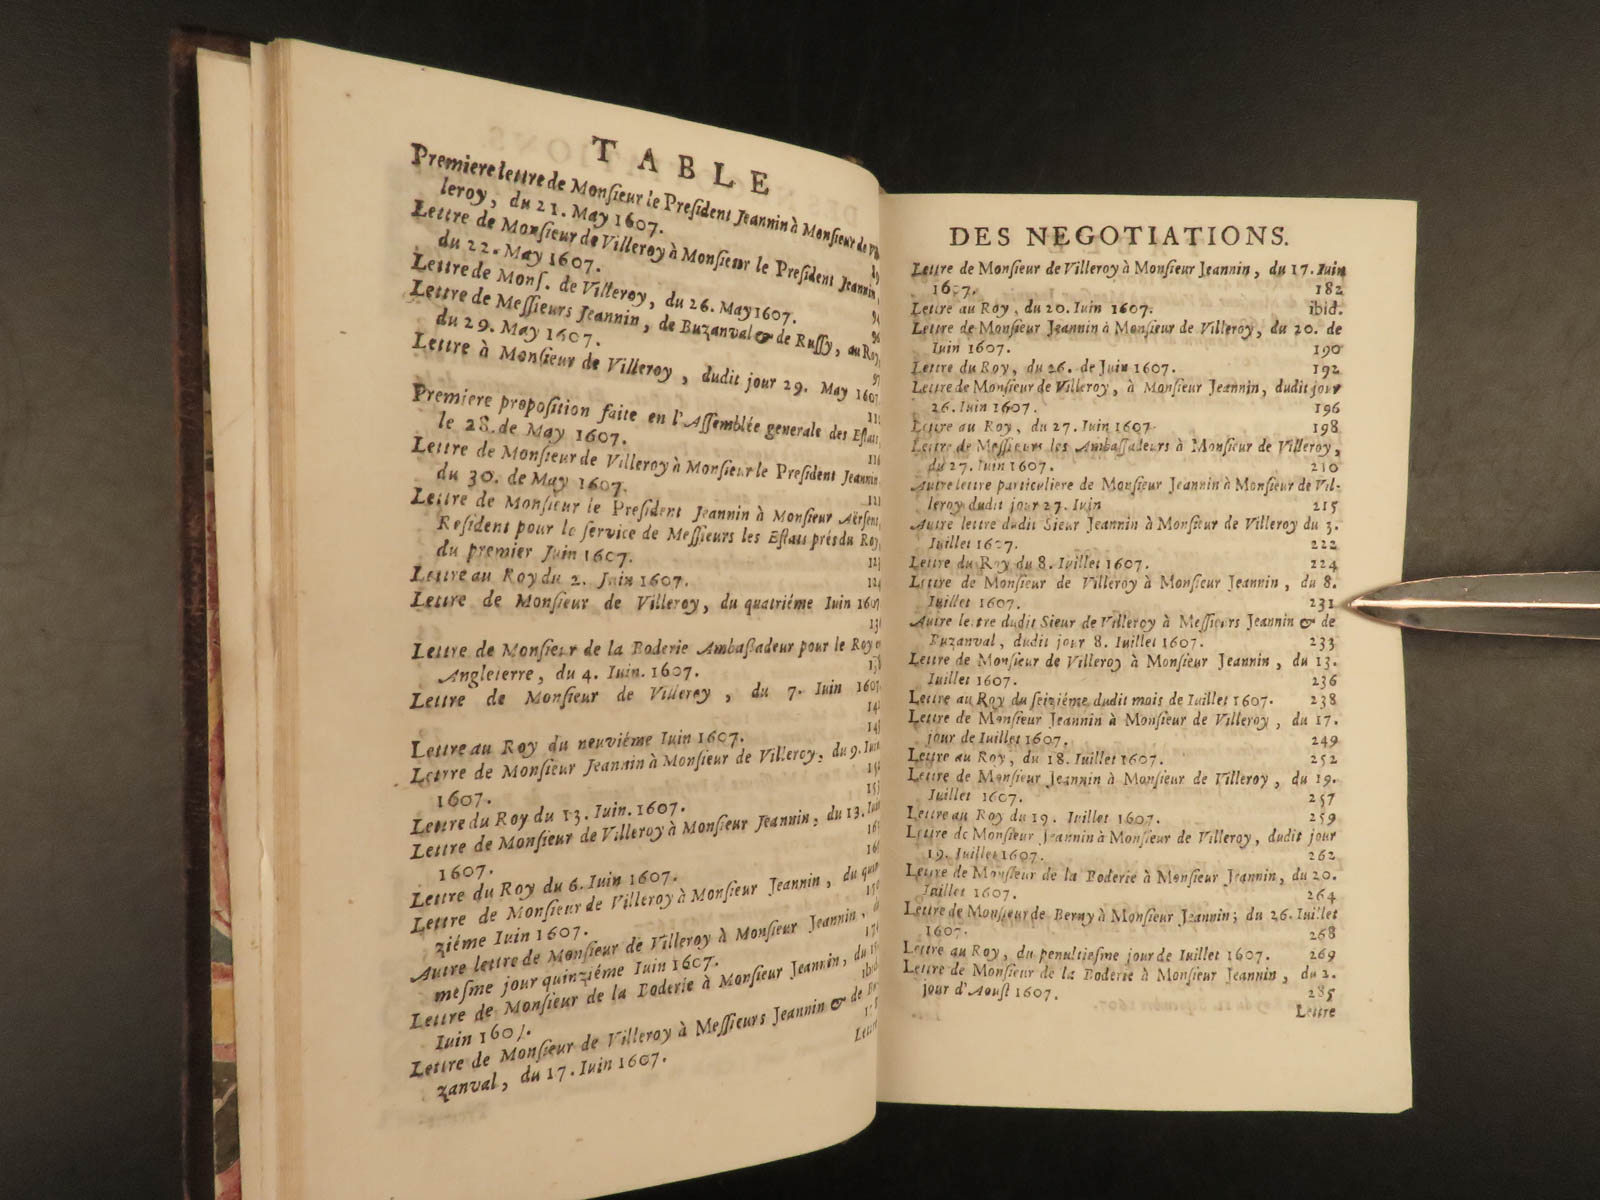 TABLE
Premiere lettre de Monſieur le Preſident Jeannin à Monſieur de Vil
leroy, du 21. May 1607.
Lettre de Monſieur de Villeroy à Monſieur le Preſident Jeannin,
du 22. May 1607.
Lettre de Monſ. de Villeroy, du 26. May 1607.
Lettre de Meſſieurs Jeannin, de Buzanval & de Ruſſy, au Roy,
du 29. May 1607.
Lettre à Monſieur de Villeroy, dudit jour 29. May 1607
Premiere propoſition faite en l'Aſſemblée generale des Eſtats
le 28. de May 1607.
Lettre de Monſieur de Villeroy à Monſieur le Preſident Jeannin
du 30. de May 1607.
Lettre de Monſieur le Preſident Jeannin à Monſieur Aërſens
Reſident pour le ſervice de Meſſieurs les Eſtats prés du Roy,
du premier Juin 1607.
Lettre au Roy du 2. Juin 1607.
Lettre de Monſieur de Villeroy, du quatriéme Iuin 1607
Lettre de Monſieur de la Boderie Ambaſſadeur pour le Roy en
Angleterre, du 4. Iuin. 1607.
Lettre de Monſieur de Villeroy, du 7. Iuin 1607.
Lettre au Roy du neuviéme Iuin 1607.
Letrre de Monſieur Jeannin à Monſieur de Villeroy, du 9. Iuin
1607.
Lettre du Roy du 13. Iuin. 1607.
Lettre de Monſieur de Villeroy à Monſieur Jeannin, du 13. Iuin
1607.
Lettre du Roy du 6. Iuin 1607.
Lettre de Monſieur de Villeroy à Monſieur Jeannin, du quin
ziéme Iuin 1607.
Autre lettre de Monſieur de Villeroy à Monſieur Jeannin,
meſme jour quinziéme Iuin 1607.
Lettre de Monſieur de la Boderie à Monſieur Jeannin, du
ibid
Iuin 1607.
Lettre de Monſieur de Villeroy à Meſſieurs Jeannin & de Bu
zanval, du 17. Iuin 1607.
Lettre
DES NEGOTIATIONS.
Lettre de Monſieur de Villeroy à Monſieur Jeannin, du 17. Iuin
1607. 182
Lettre au Roy, du 20. Iuin 1607. ibid.
Lettre de Monſieur Jeannin à Monſieur de Villeroy, du 20. de
Iuin 1607. 190
Lettre du Roy, du 26. de Juin 1607. 192
Lettre de Monſieur de Villeroy, à Monſieur Jeannin, dudit jour
26. Iuin 1607. 196
Lettre au Roy, du 27. Iuin 1607. 198
Lettre de Meſſieurs les Ambaſſadeurs à Monſieur de Villeroy,
du 27. Iuin 1607. 210
Autre lettre particuliere de Monſieur Jeannin à Monſieur de Vil-
leroy dudit jour 27. Iuin 215
Autre lettre dudit Sieur Jeannin à Monſieur de Villeroy du 3.
Iuillet 1607. 222
Lettre du Roy du 8. Iuillet 1607. 224
Lettre de Monſieur de Villeroy à Monſieur Jeannin, du 8.
Iuillet 1607. 231
Autre lettre dudit Sieur de Villeroy à Meſſieurs Jeannin & de
Buzanval, dudit jour 8. Iuillet 1607. 233
Lettre de Monſieur de Villeroy à Monſieur Jeannin, du 13.
Iuillet 1607. 236
Lettre au Roy du ſeiziéme dudit mois de Iuillet 1607. 238
Lettre de Monſieur Jeannin à Monſieur de Villeroy, du 17.
jour de Iuillet 1607. 249
Lettre au Roy, du 18. Iuillet 1607. 252
Lettre de Monſieur Jeannin à Monſieur de Villeroy, du 19.
Iuillet 1607. 257
Lettre au Roy du 19. Iuillet 1607. 259
Lettre de Monſieur Jeannin à Monſieur de Villeroy, dudit jour
19. Iuillet 1607. 262
Lettre de Monſieur de la Boderie à Monſieur Jeannin, du 20.
Iuillet 1607. 264
Lettre de Monſieur de Berny à Monſieur Jeannin; du 26. Iuillet
1607. 268
Lettre au Roy, du penultieſme jour de Iuillet 1607. 269
Lettre de Monſieur de la Boderie à Monſieur Jeannin, du 2.
jour d'Aouſt 1607. 285
Lettre